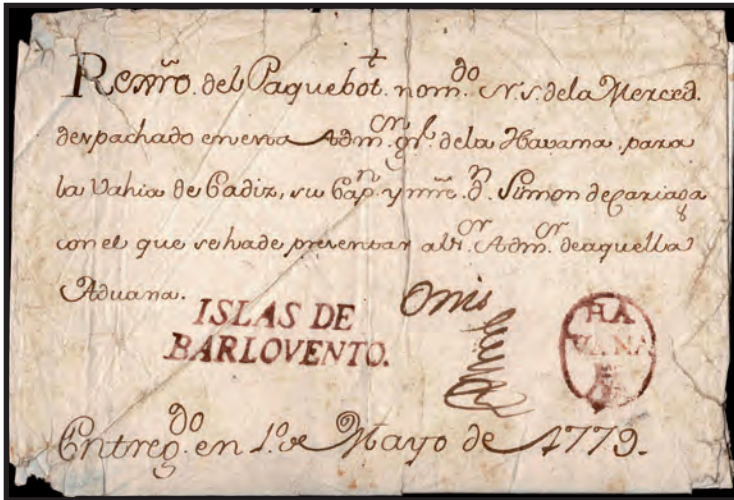 Rexro. del Paquebot. nom.do N.S. de la Merced.
despachado en esta Adm.on grl. de la Havana, para
la Vahia de Cadiz, su Cap.n y mre. d.n Simon de Cariaga
con el que se ha de presentar al Sr. Adm.or de aquella
Aduana.
ISLAS DE
BARLOVENTO.
Onis
HA
VANA
Entreg.do en 1.o de Mayo de 1779.